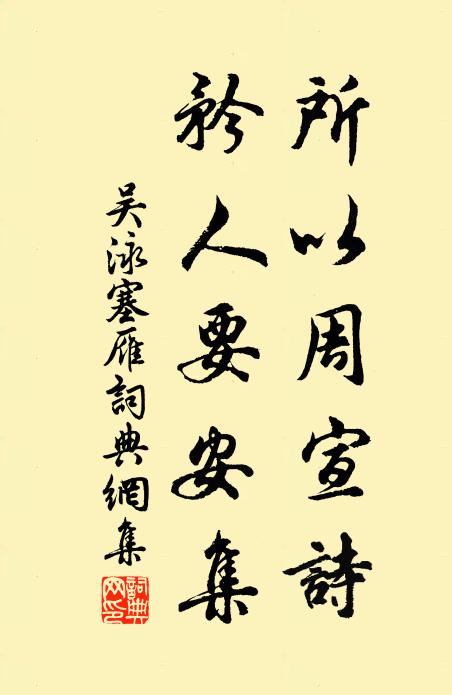 所以周宣詩
矜人要安集
吴泳塞雁詞典網集
詞典